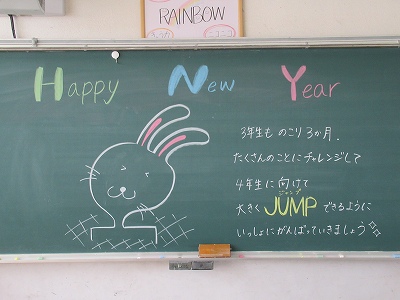 RAINBOW
Happy New Year
3年生も のこり 3か月.
たくさんのことにチャレンジして
4年生に向けて
ジャンプ
大きく JUMP できるように
いっしょにがんばっていきましょう